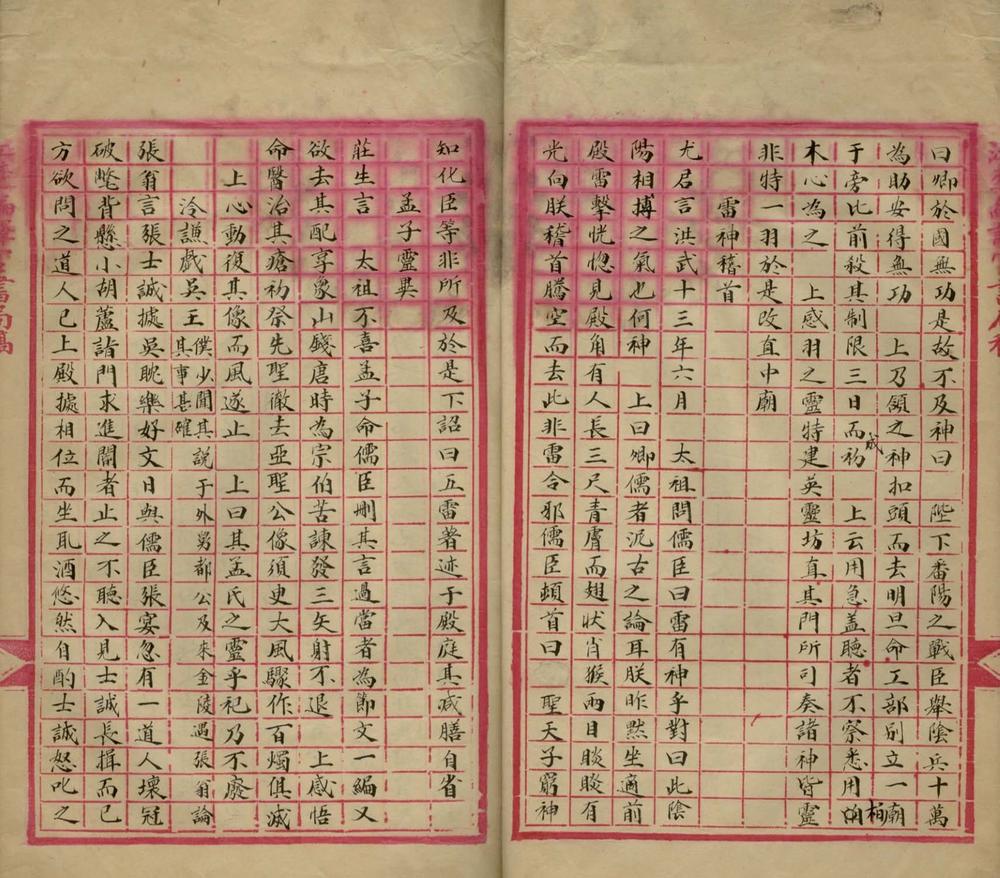 曰卿於國無功是故不及神曰　陛下番陽之戰臣舉陰兵十萬
為助安得無功　上乃領之神扣頭而去明旦命工部別立一廟
于旁比前殺其制限三日而礿成　上云用急盖聽者不察悉用柏
木心為之　上感羽之靈特建英靈坊直其門所司奏諸神皆靈
非特一羽於是改直中廟
雷神稽首
尤君言洪武十三年六月　太祖問儒臣曰雷有神乎對曰此陰
陽相搏之氣也何神　上曰卿儒者泥古之論耳朕昨黙坐適前
殿雷擊恍惚見殿角有人長三尺青膚而翅狀肖猴兩目睒睒有
光向朕稽首騰空而去此非雷令邪儒臣頓首曰　聖天子窮神
知化臣等非所及於是下詔曰五雷著迹于殿庭其减膳自省
孟子靈異
莊生言　太祖不喜孟子命儒臣刪其言過當者為節文一編又
欲去其配享象山錢唐時為宗伯苦諫發三矢射不退　上感悟
命醫治其瘡初祭先聖徹去亞聖公像須更大風驟作百燭俱滅
上心動復其像而風遂止　上曰其孟氏之靈乎祀乃不廢
泠謙戲吳王 僕少聞其說于外舅都公及来金陵遇張翁論其事甚確
張翁言張士誠據吳眈樂好文日與儒臣張宴忽有一道人壞冠
破氅背縣小胡蘆詣門求進閽者止之不聽入見士誠長揖而已
方欲問之道人已上殿據相位而坐瓦酒悠然自酌士誠怒叱之